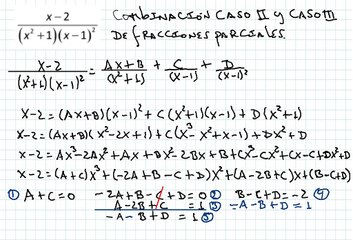 x − 2 / (x² + 1)(x − 1)²
COMBINACIÓN CASO II y CASO III
DE FRACCIONES PARCIALES.
X-2 / (X²+1)(X-1)² = AX+B / (X²+1) + C / (X-1) + D / (X-1)²
X-2 = (AX+B)(X-1)² + C(X²+1)(X-1) + D(X²+1)
X-2 = (AX+B)(X²-2X+1) + C(X³-X²+X-1) + DX²+D
X-2 = AX³-2AX²+AX+BX²-2BX+B+CX³-CX²+CX-C+DX²+D
X-2 = (A+C)X³+(-2A+B-C+D)X²+(A-2B+C)X+(B-C+D)
① A+C=0 -2A+B-C+D=0 ② B-C+D=-2 ④
A-2B+C = 1 ③ -A-B+D=1
-A-B+D = 1 ⑤